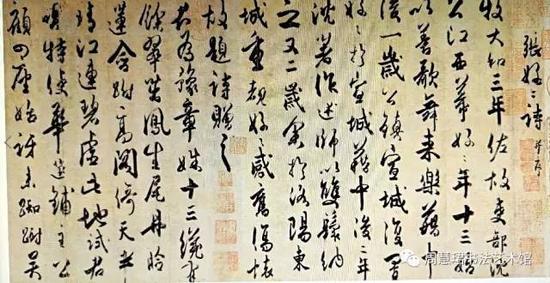 張好〻詩并序
牧大和三年佐故吏部沈
公江西幕好〻年十三始
以善歌舞来樂籍中
後一歲公鎮宣城復置
好〻於宣城籍中後二年
沈著作述師以雙鬟納
之又二歲余於洛陽東
城重覩好〻感舊傷懷
故題詩贈之
君為豫章姝十三纔有
餘翠茁鳳生尾丹臉
蓮含跗高閣倚天半
晴江連碧虛此地試君
唱特使華筵鋪主公
顧四座始訝来踟蹰吴
周慧珺书法艺术馆